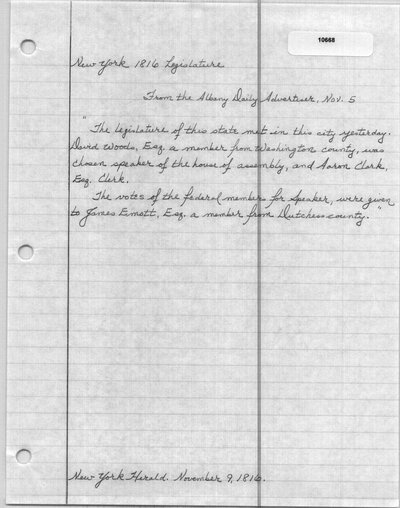 10668
New York 1816 Legislature
From the Albany Daily Advertiser, Nov. 5
"The legislature of this state met in this city yesterday.
David Woods, Esq. a member from Washington county, was
chosen speaker of the house of assembly, and Aaron Clark,
Esq. Clerk.
The votes of the federal members for Speaker, were given
to James Emott, Esq. a member from Dutchess county."
New York Herald. November 9, 1816.